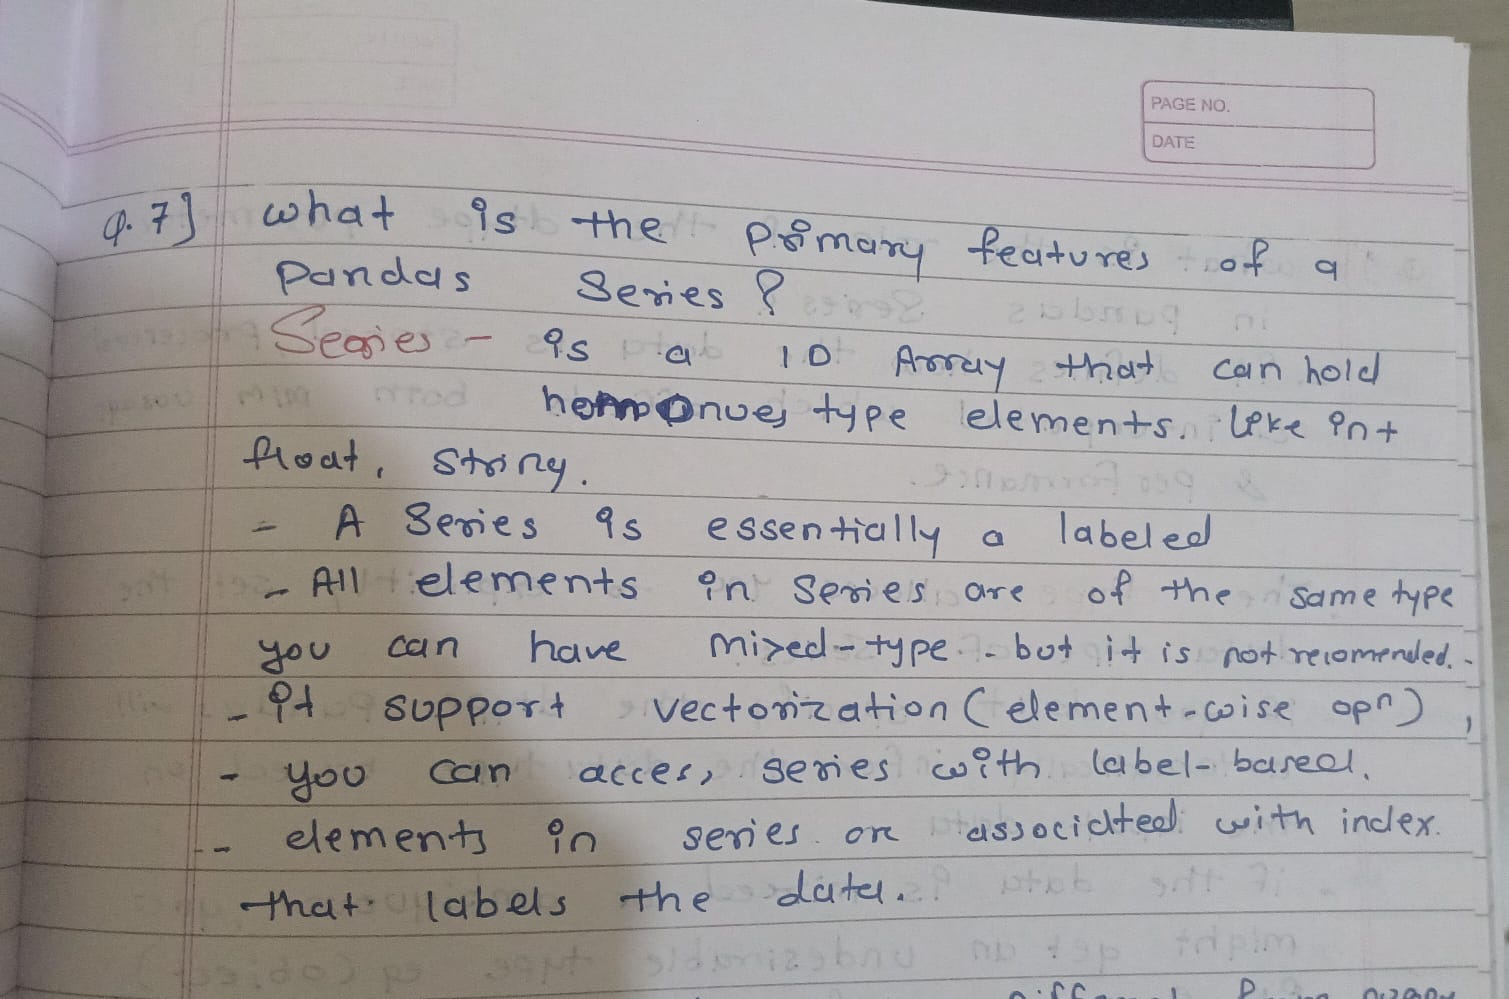 PAGE NO.
DATE
Q.7] what is the primary features of a
pandas Series?
Series - is a 1D Array that can hold
type elements. like int
float, string.
- A Series is essentially a labeled
- All elements in Series are of the same type
you can have mixed-type - but it is not recomended.
- it support vectorization (element-wise opn),
- you can acces, series with label-based.
- elements in series are associated with index.
that labels the data.